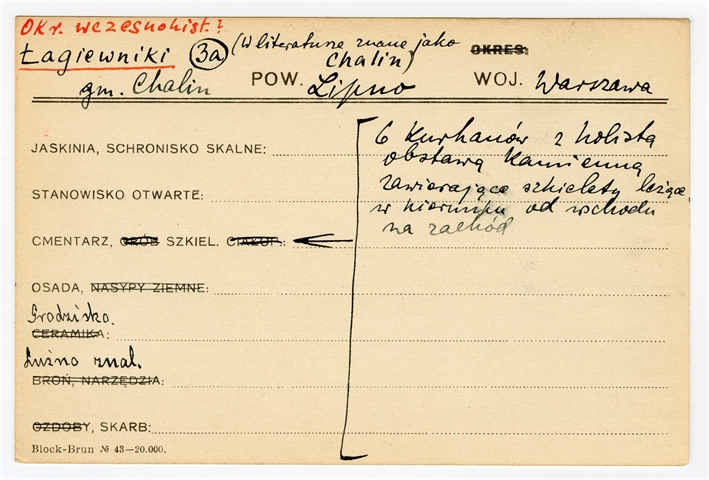 Okr. wczesnohist.?
Łagiewniki 3a (W literaturze znane jako Chalin) OKRES:
gm. Chalin POW. Lipno WOJ. Warszawa
6 kurhanów z kolistą
obstawą kamienną
zawierające szkielety leżące
w kierunku od wschodu
na zachód
JASKINIA, SCHRONISKO SKALNE:
STANOWISKO OTWARTE:
CMENTARZ, GRÓB SZKIEL. CIAŁOP.:
OSADA, NASYPY ZIEMNE:
Grodzisko.
CERAMIKA:
Luźno znal.
BROŃ, NARZĘDZIA:
OZDOBY, SKARB:
Block-Brun № 43—20.000.